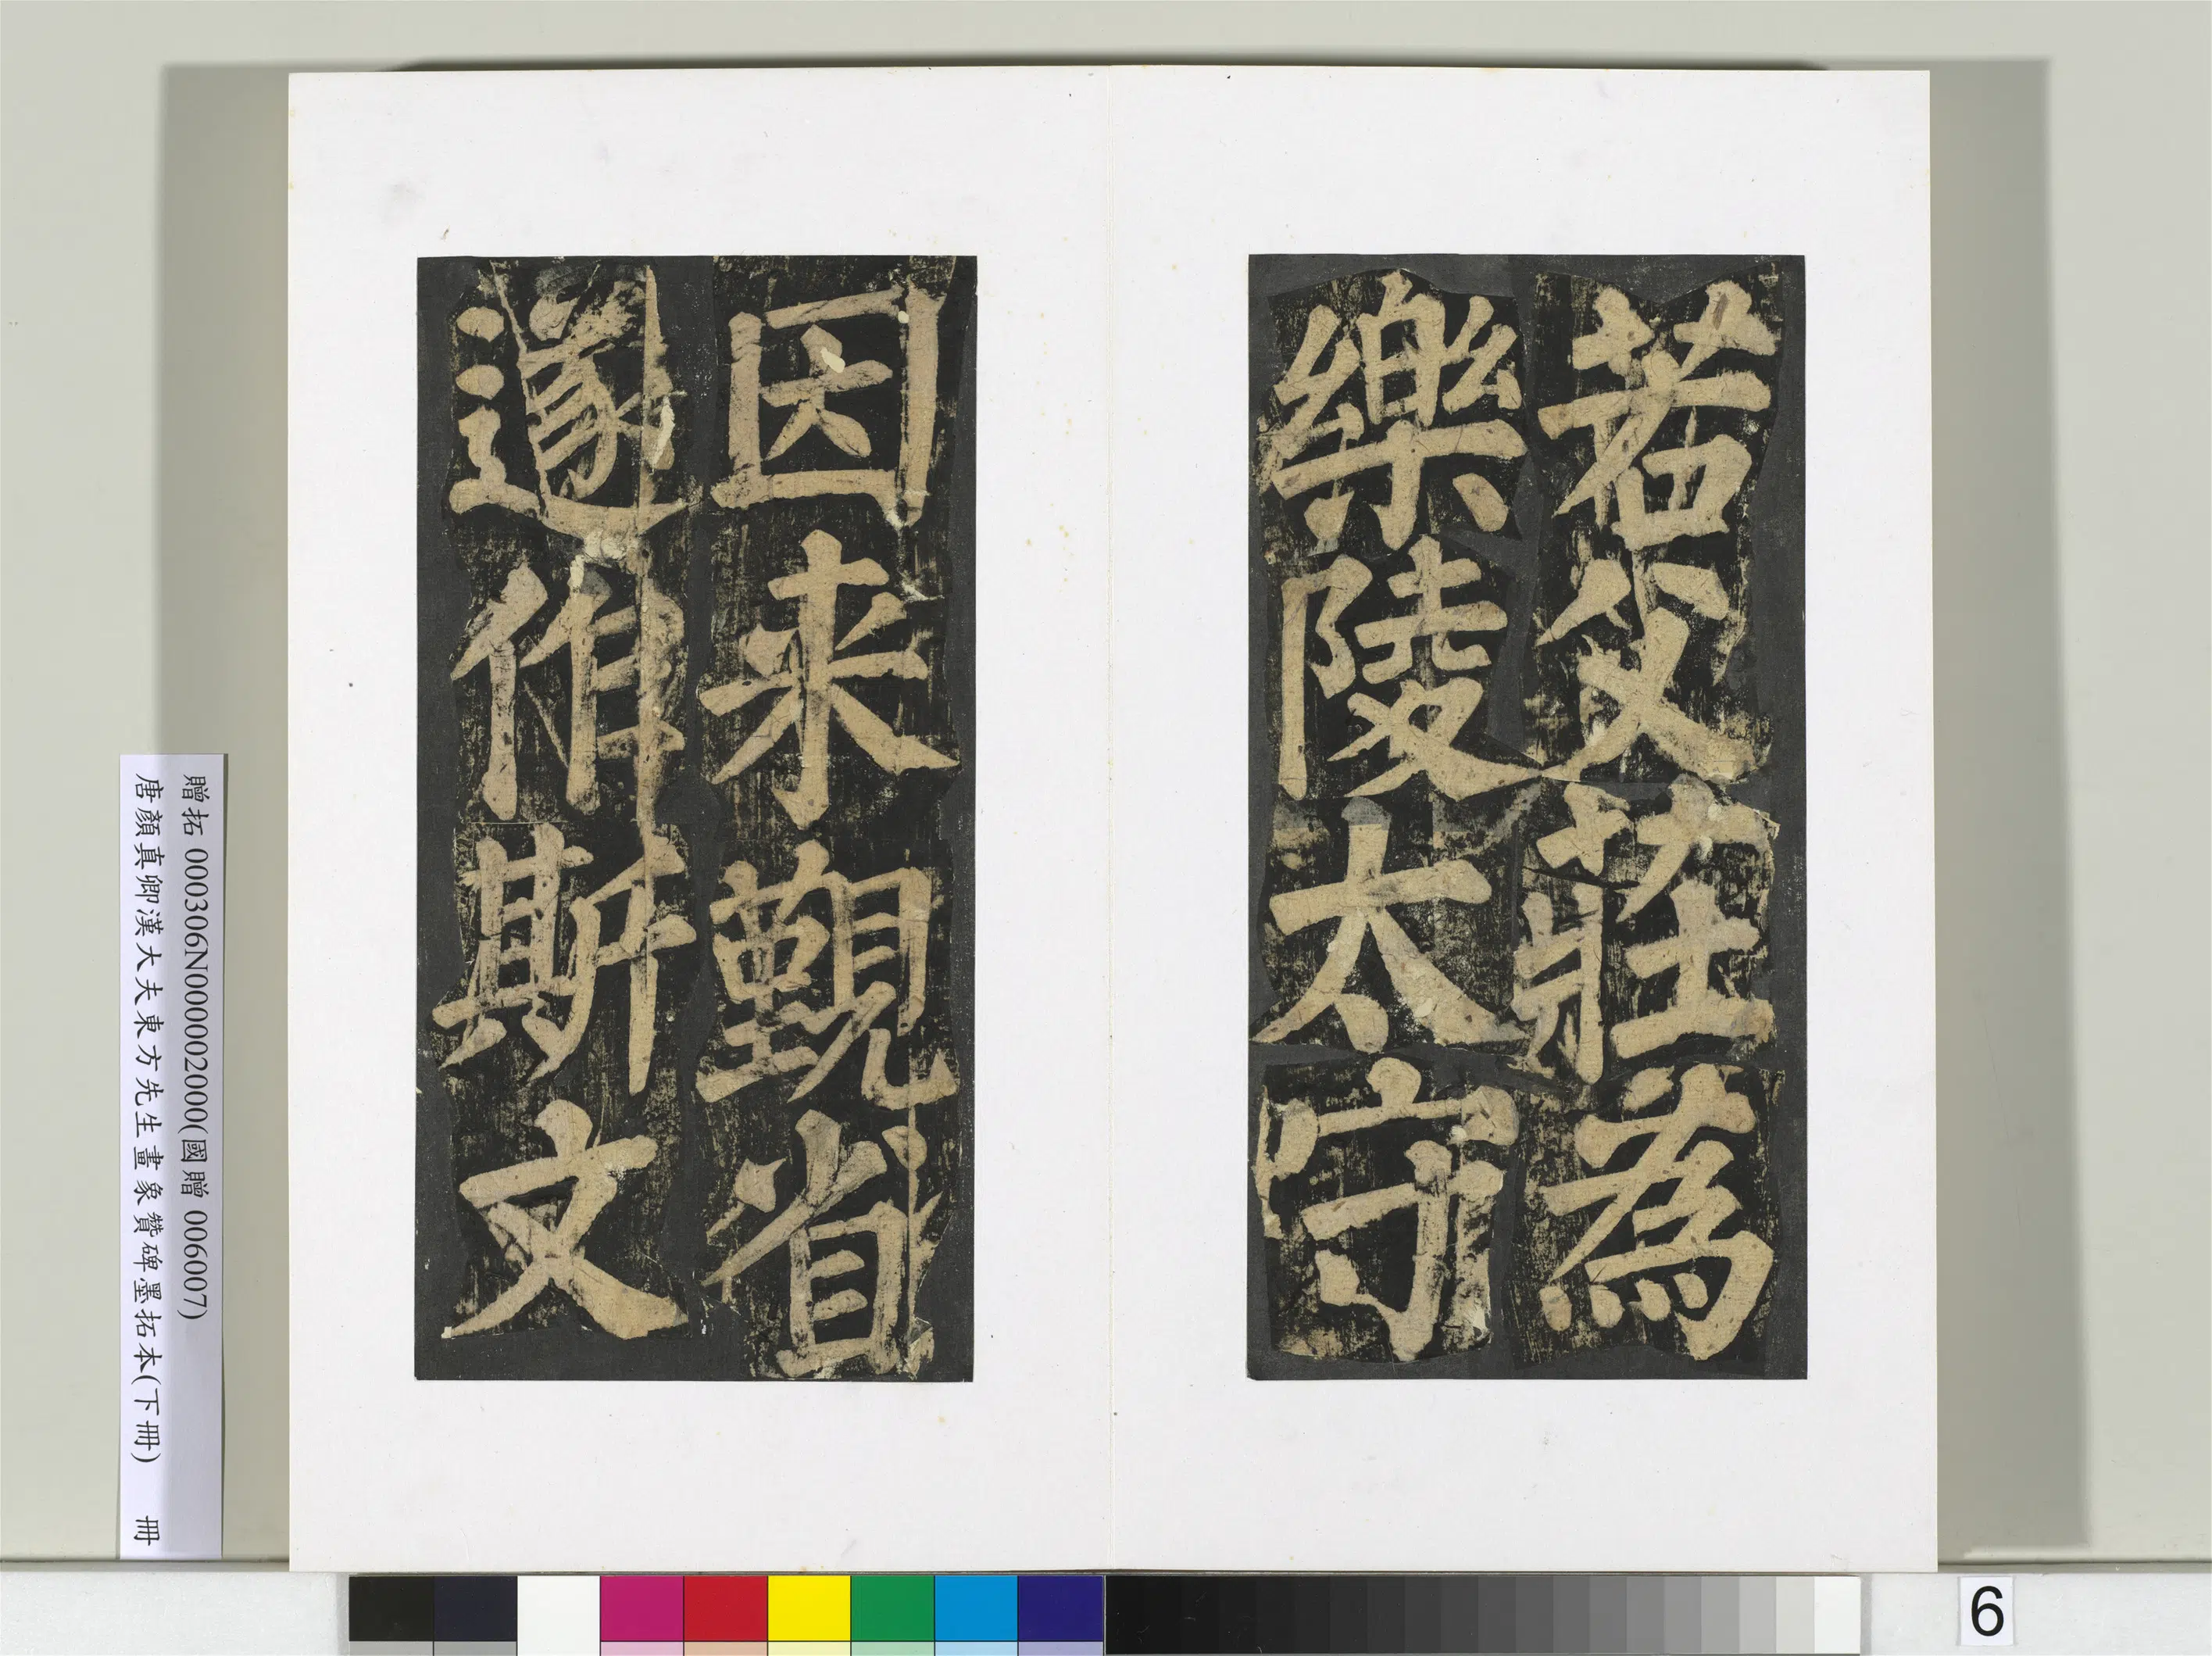 若父莊為
樂陵太守
因来覲省
遂作斯文
贈拓 000306N000002000(國贈 006007)
唐顏真卿漢大夫東方先生畫象贊碑墨拓本(下冊) 冊
6